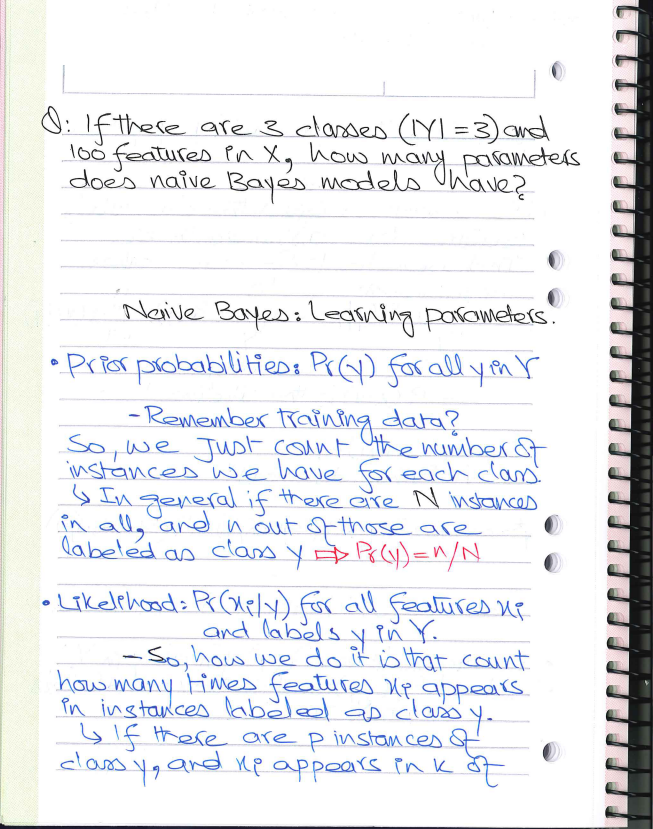 Q: If there are 3 classes (|Y| = 3) and
100 features in X, how many parameters
does naive Bayes models have?
Naive Bayes: Learning parameters.
• Prior probabilities: Pr(y) for all y in Y
- Remember training data?
So, we Just count the number of
instances we have for each class.
↳ In general if there are N instances
in all, and n out of those are
labeled as class y ⇨ Pr(y) = n/N
• Likelihood: Pr(xi|y) for all features xi
and labels y in Y.
- So, how we do it is that count
how many times features xi appears
in instances labeled as class y.
↳ If there are p instances of
class y, and xi appears in k of